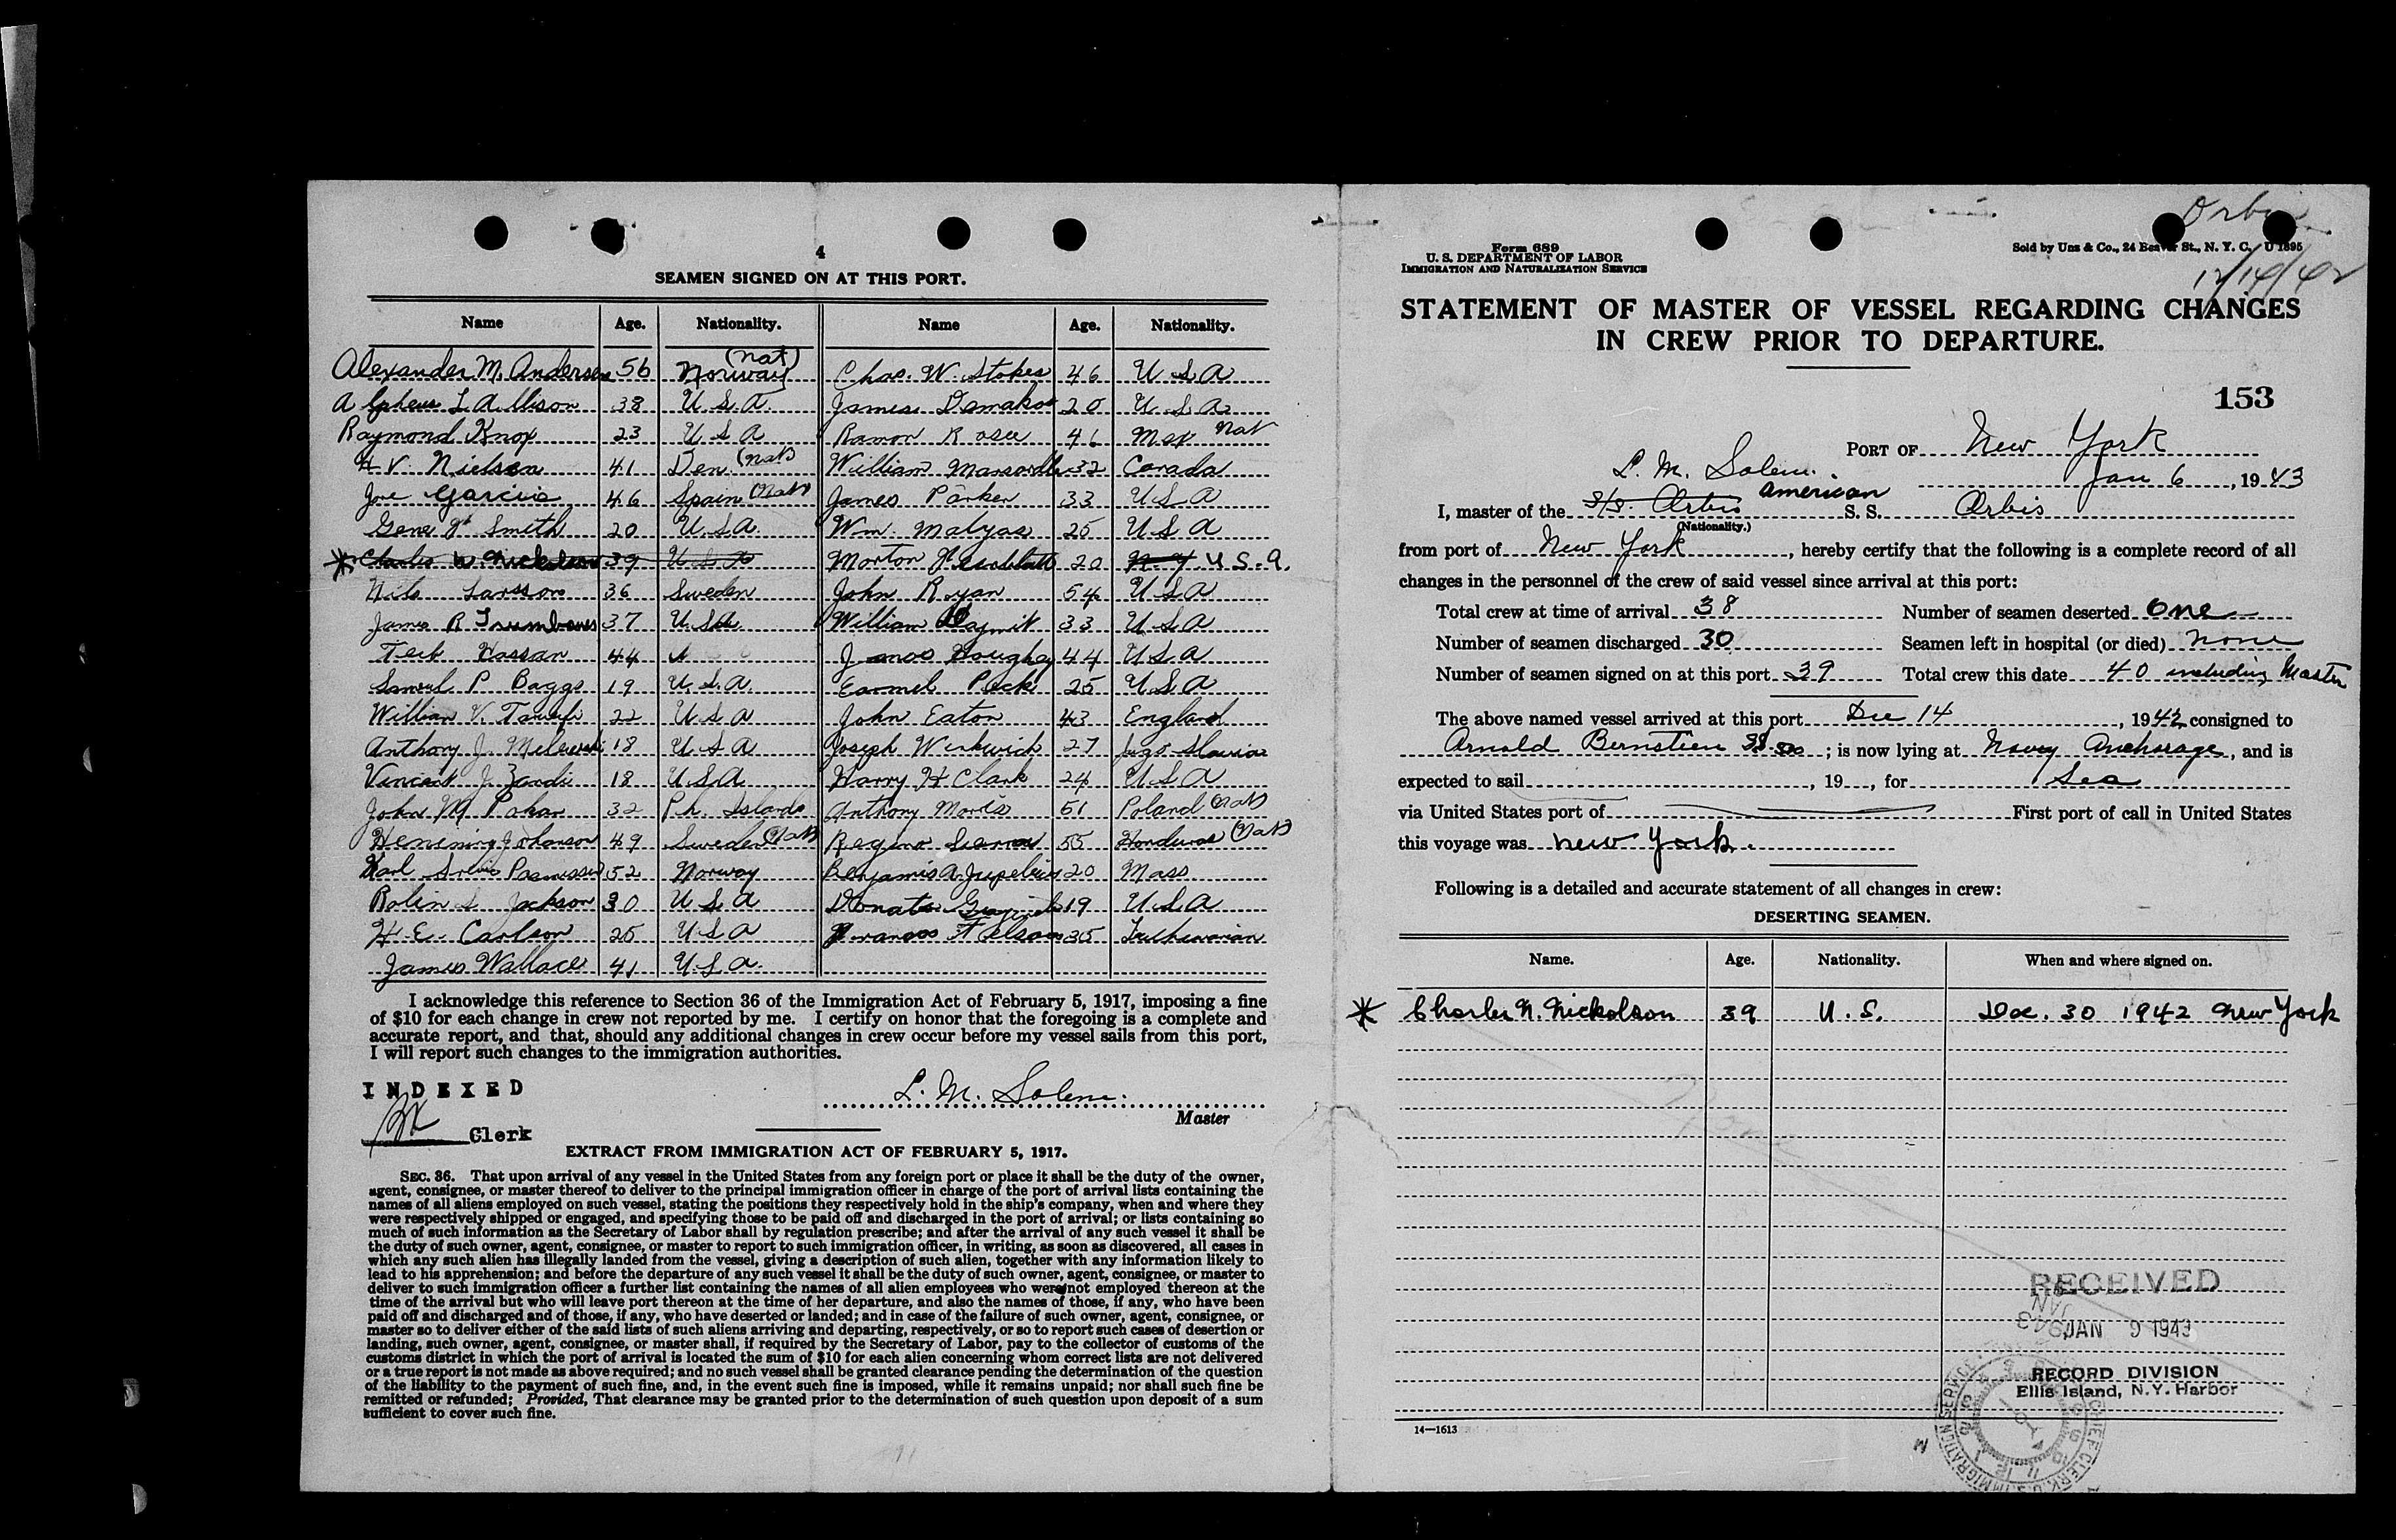 4
SEAMEN SIGNED ON AT THIS PORT.
Name Age. Nationality. Name Age. Nationality.
Alexander M. Andersen 56 Norway (nat) Chas. W. Stokes 46 U S A
Alpheus L. Allison 38 U.S.A. James Damakos 20 U S A
Raymond Knox 23 U S A Ramon Rosee 46 Mex nat
H V. Nielsen 41 Den. (nat) William 32 Canada
Joe Garcia 46 Spain (Nat) James Parker 33 U S A
Gene Jr Smith 20 U.S.A. Wm. Matyas 25 U S A
* Charles W. Nickolson 39 U S A Morton 20 N.Y. U.S.A.
Nils Larsson 36 Sweden John Ryan 54 U S A
James R Trumbours 37 U.S.A. William 33 U S A
Hassan 44 James Houghey 44 U S A
Samuel P Baggs 19 U.S.A. Earmel Peck 25 U S A
William V. 22 U S A John Eaton 43 England
Anthony J. 18 U S A Joseph Winkwich 27 Jugo Slavia
Vincent J. Zardi 18 U S A Harry H Clark 24 U S A
John M Pohan 32 Ph. Islands Anthony Morris 51 Poland (nat)
Henning Johanson 49 Sweden (Nat) Regino 55 Honduras (Nat)
Karl 52 Norway Benjamin A. 20 Mass
Rolin L Jackson 30 U S A Donato 19 U.S.A
H. E. Carlson 25 U.S A 35
James Wallace 41 U.S.A.
I acknowledge this reference to Section 36 of the Immigration Act of February 5, 1917, imposing a fine
of $10 for each change in crew not reported by me. I certify on honor that the foregoing is a complete and
accurate report, and that, should any additional changes in crew occur before my vessel sails from this port,
I will report such changes to the immigration authorities.
INDEXED
L. M. Solem.
Master
Clerk
EXTRACT FROM IMMIGRATION ACT OF FEBRUARY 5, 1917.
SEC. 36. That upon arrival of any vessel in the United States from any foreign port or place it shall be the duty of the owner,
agent, consignee, or master thereof to deliver to the principal immigration officer in charge of the port of arrival lists containing the
names of all aliens employed on such vessel, stating the positions they respectively hold in the ship's company, when and where they
were respectively shipped or engaged, and specifying those to be paid off and discharged in the port of arrival; or lists containing so
much of such information as the Secretary of Labor shall by regulation prescribe; and after the arrival of any such vessel it shall be
the duty of such owner, agent, consignee, or master to report to such immigration officer, in writing, as soon as discovered, all cases in
which any such alien has illegally landed from the vessel, giving a description of such alien, together with any information likely to
lead to his apprehension; and before the departure of any such vessel it shall be the duty of such owner, agent, consignee, or master to
deliver to such immigration officer a further list containing the names of all alien employees who were not employed thereon at the
time of the arrival but who will leave port thereon at the time of her departure, and also the names of those, if any, who have been
paid off and discharged and of those, if any, who have deserted or landed; and in case of the failure of such owner, agent, consignee, or
master so to deliver either of the said lists of such aliens arriving and departing, respectively, or so to report such cases of desertion or
landing, such owner, agent, consignee, or master shall, if required by the Secretary of Labor, pay to the collector of customs of the
customs district in which the port of arrival is located the sum of $10 for each alien concerning whom correct lists are not delivered
or a true report is not made as above required; and no such vessel shall be granted clearance pending the determination of the question
of the liability to the payment of such fine, and, in the event such fine is imposed, while it remains unpaid; nor shall such fine be
remitted or refunded; Provided, That clearance may be granted prior to the determination of such question upon deposit of a sum
sufficient to cover such fine.
Orbis
Form 689
U. S. DEPARTMENT OF LABOR
IMMIGRATION AND NATURALIZATION SERVICE
Sold by Unz & Co., 24 Beaver St., N. Y. C. U 1895
12/14/42
STATEMENT OF MASTER OF VESSEL REGARDING CHANGES
IN CREW PRIOR TO DEPARTURE.
153
PORT OF New York
L. M. Solem. Jan 6, 1943
I, master of the S/S. Orbis American S. S. Orbis
(Nationality.)
from port of New York, hereby certify that the following is a complete record of all
changes in the personnel of the crew of said vessel since arrival at this port:
Total crew at time of arrival 38 Number of seamen deserted one
Number of seamen discharged 30 Seamen left in hospital (or died) none
Number of seamen signed on at this port 39 Total crew this date 40 including Master
The above named vessel arrived at this port Dec 14, 1942 consigned to
Arnold Bernstien SS. Co; is now lying at Navy Anchorage, and is
expected to sail, 19, for Sea
via United States port of First port of call in United States
this voyage was New York.
Following is a detailed and accurate statement of all changes in crew:
DESERTING SEAMEN.
Name. Age. Nationality. When and where signed on.
* Charles N. Nickolson 39 U. S. Dec. 30 1942 New York
RECEIVED
JAN 9 1943
RECORD DIVISION
Ellis Island, N.Y. Harbor
14—1613